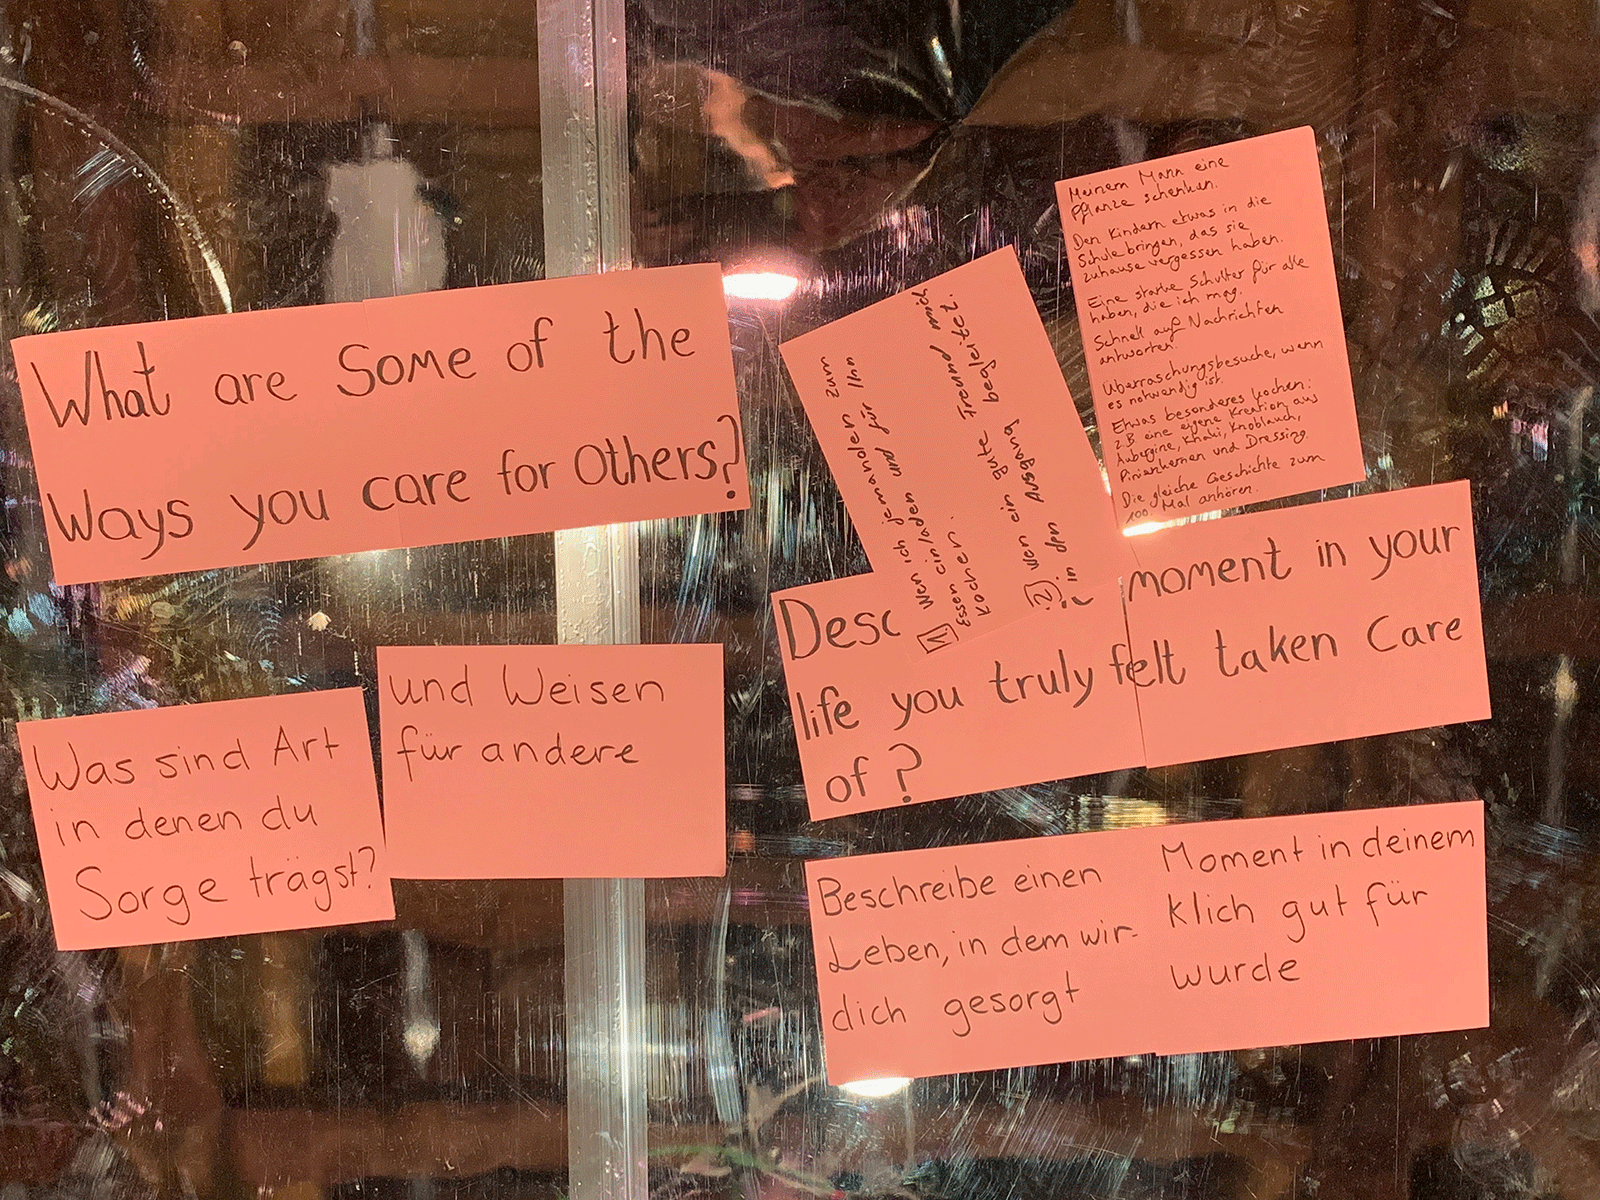 What are Some of the
Ways you care for Others?
Was sind Art
in denen du
Sorge trägst?
und Weisen
für andere
Meinem Mann eine
Pflanze schenken.
Den Kindern etwas in die
Schule bringen, das sie
zuhause vergessen haben.
Eine starke Schulter für alle
haben, die ich mag.
Schnell auf Nachrichten
antworten.
Überraschungsbesuche, wenn
es notwendig ist.
Etwas besonderes kochen:
z.B eine eigene Kreation aus
Aubergine, Khaki, Knoblauch,
Pinienkernen und Dressing.
Die gleiche Geschichte zum
100. Mal anhören.
1) Wen ich jemanden zum
essen einladen und für Ihn
kochen.
2) Wen ein gute Freund mich
in den Ausgang begleitet.
Desc moment in your
life you truly felt taken Care
of?
Beschreibe einen Moment in deinem
Leben, in dem wir- klich gut für
dich gesorgt wurde